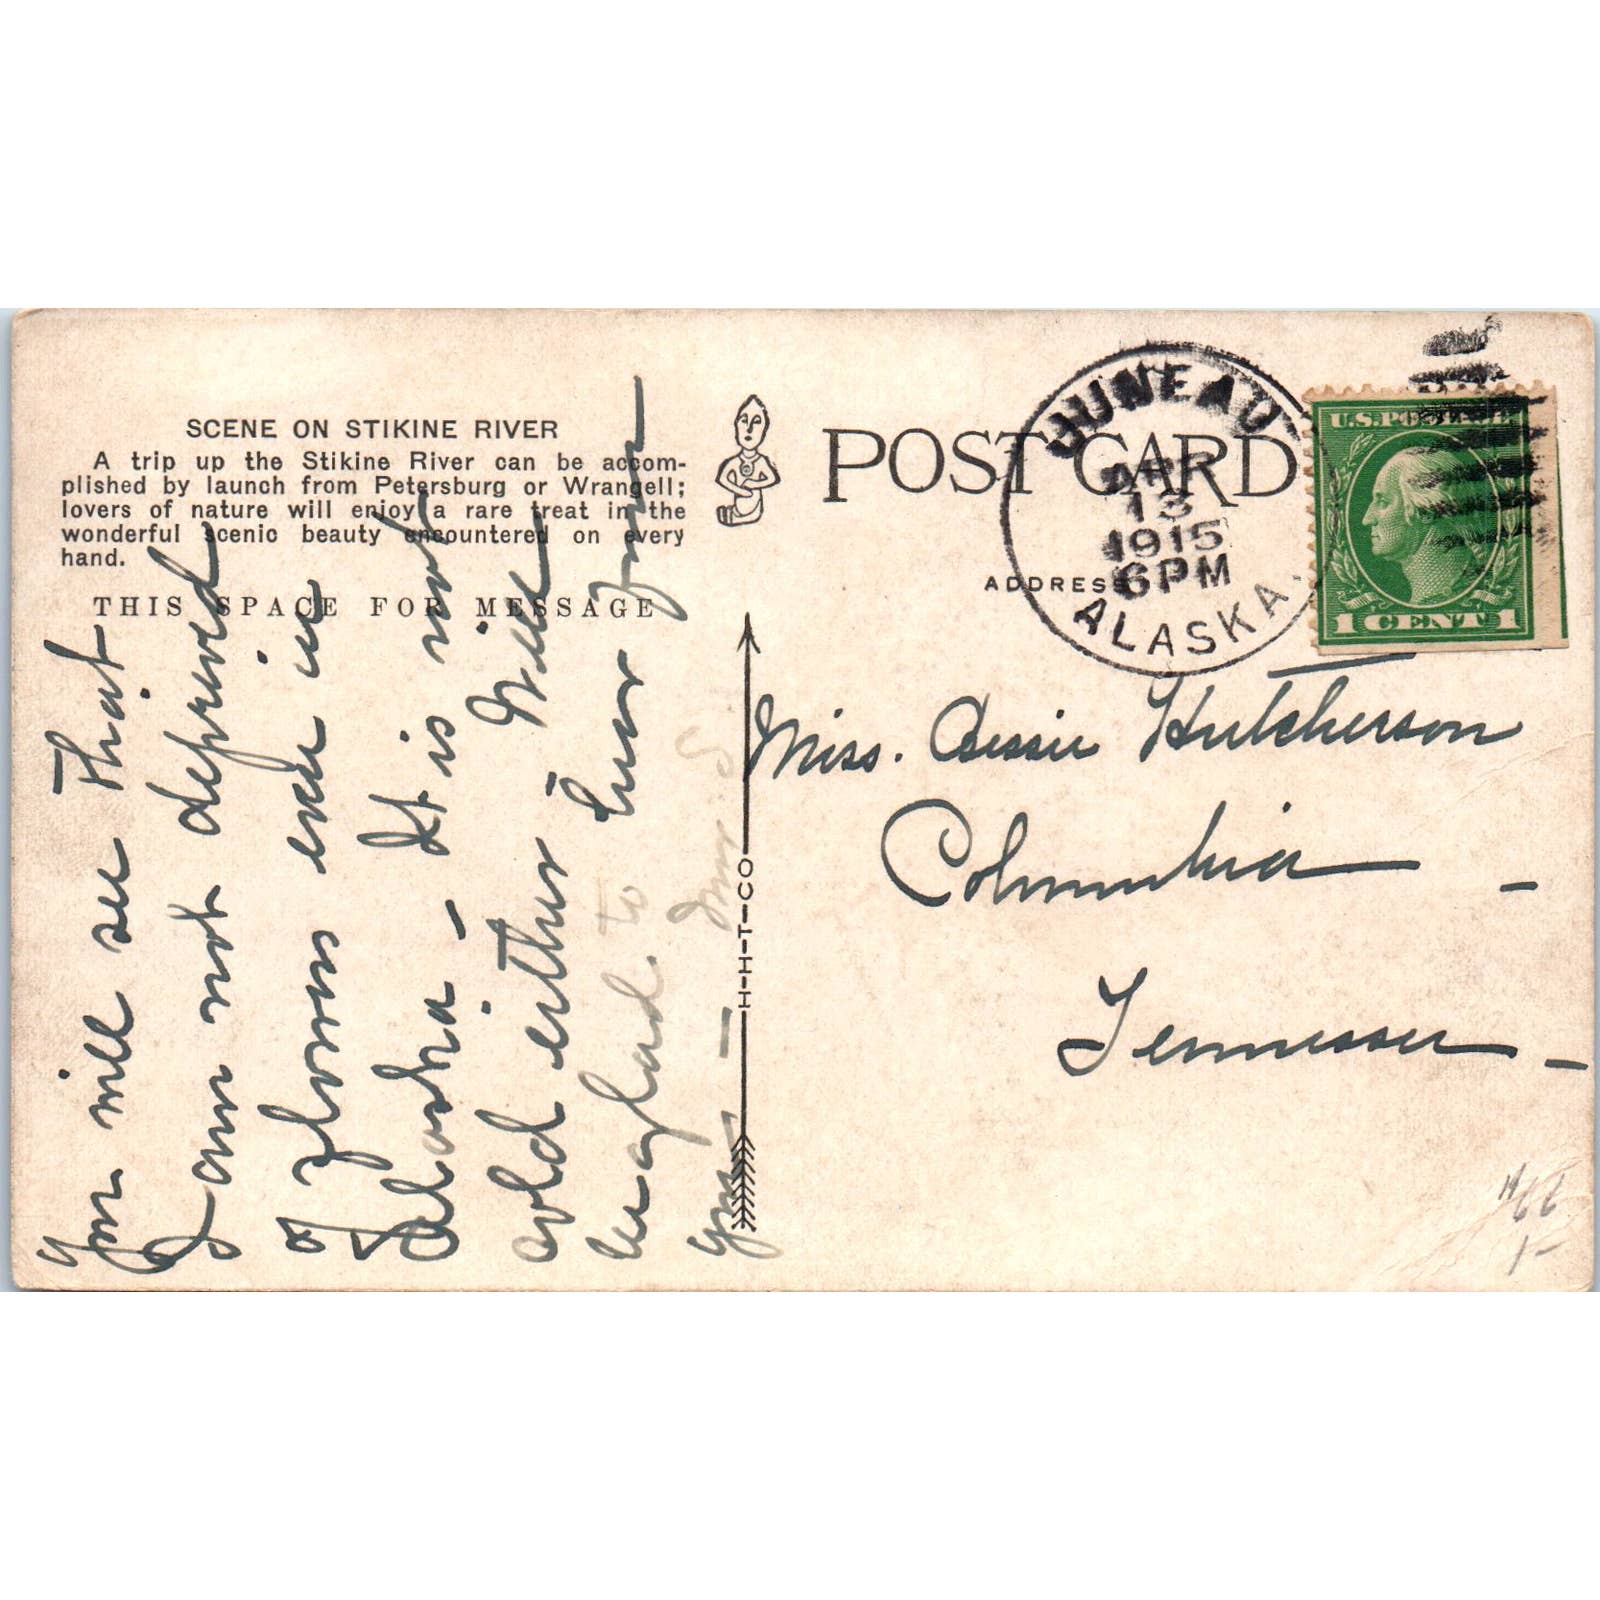 SCENE ON STIKINE RIVER
A trip up the Stikine River can be accom-
plished by launch from Petersburg or Wrangell;
lovers of nature will enjoy a rare treat in the
wonderful scenic beauty encountered on every
hand.
THIS SPACE FOR MESSAGE
You will see that
I am not deprived
of flowers even in
Alaska - It is not
cold either Will
be glad to hear from
you -
H-H-T-CO
POST CARD
ADDRESS
JUNEAU
APR
13
1915
6PM
ALASKA.
U.S. POSTAGE
1 CENT 1
Miss. Bessie Hutcherson
Columbia -
Tennessee -
1-